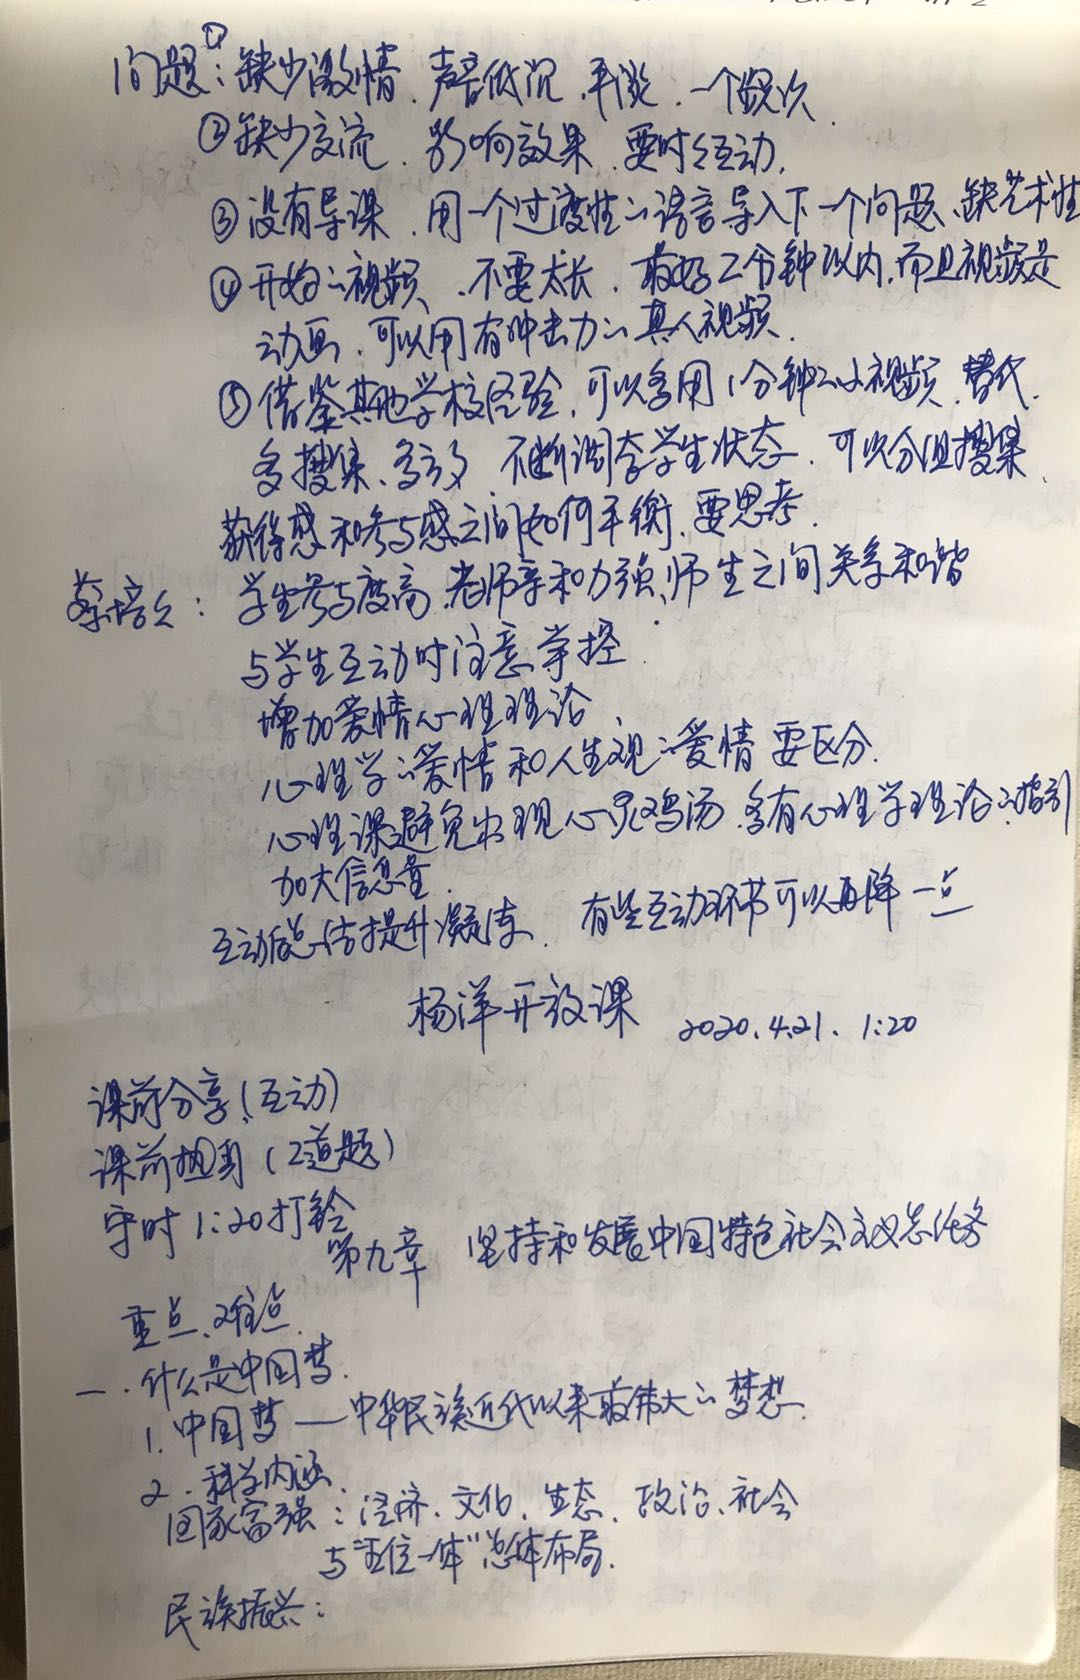 问题：①缺少激情、声音低沉、平淡、一个频次
②缺少交流、影响效果、要时时互动，
③没有导课、用一个过渡性的语言导入下一个问题、缺艺术性
④开始的视频、不要太长、最好2分钟以内，而且视频是
动画、可以用有冲击力的真人视频、
⑤借鉴其他学校经验，可以多用1分钟的小视频、替代、
多搜集、 不断调查学生状态、可以分组搜集
获得感和参与感之间如何平衡、要思考、
蔡 ：学生参与度高、老师亲和力强、师生之间关系和谐
与学生互动时注意掌控
增加爱情心理理论、
心理学的爱情和人生观的爱情要区分、
心理课避免出现心灵鸡汤、多有心理学理论的指引
加大信息量、
互动后总结提升凝练、 有些互动环节可以再降一点
杨洋开放课 2020.4.21. 1:20
课前分享（互动）
课前 （2道题）
守时 1:20打铃
第九章 坚持和发展中国特色社会主义总任务
重点、难点、
一、什么是中国梦、
1. 中国梦—中华民族近代以来最伟大的梦想、
2. 科学内涵、
国家富强：经济、文化、生态、政治、社会
与“五位一体”总体布局、
民族振兴：